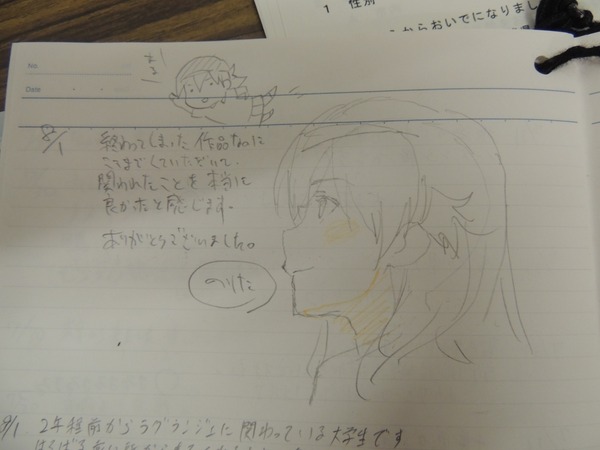 1 性別
からおいでになりまし
No.
Date
8/1
終わってしまった作品なのに
ここまでしていただいて、
関われたことを本当に
良かったと感じます。
ありがとうございました。
のりた
8/1 2年程前からラグランジェに関わっている大学生です